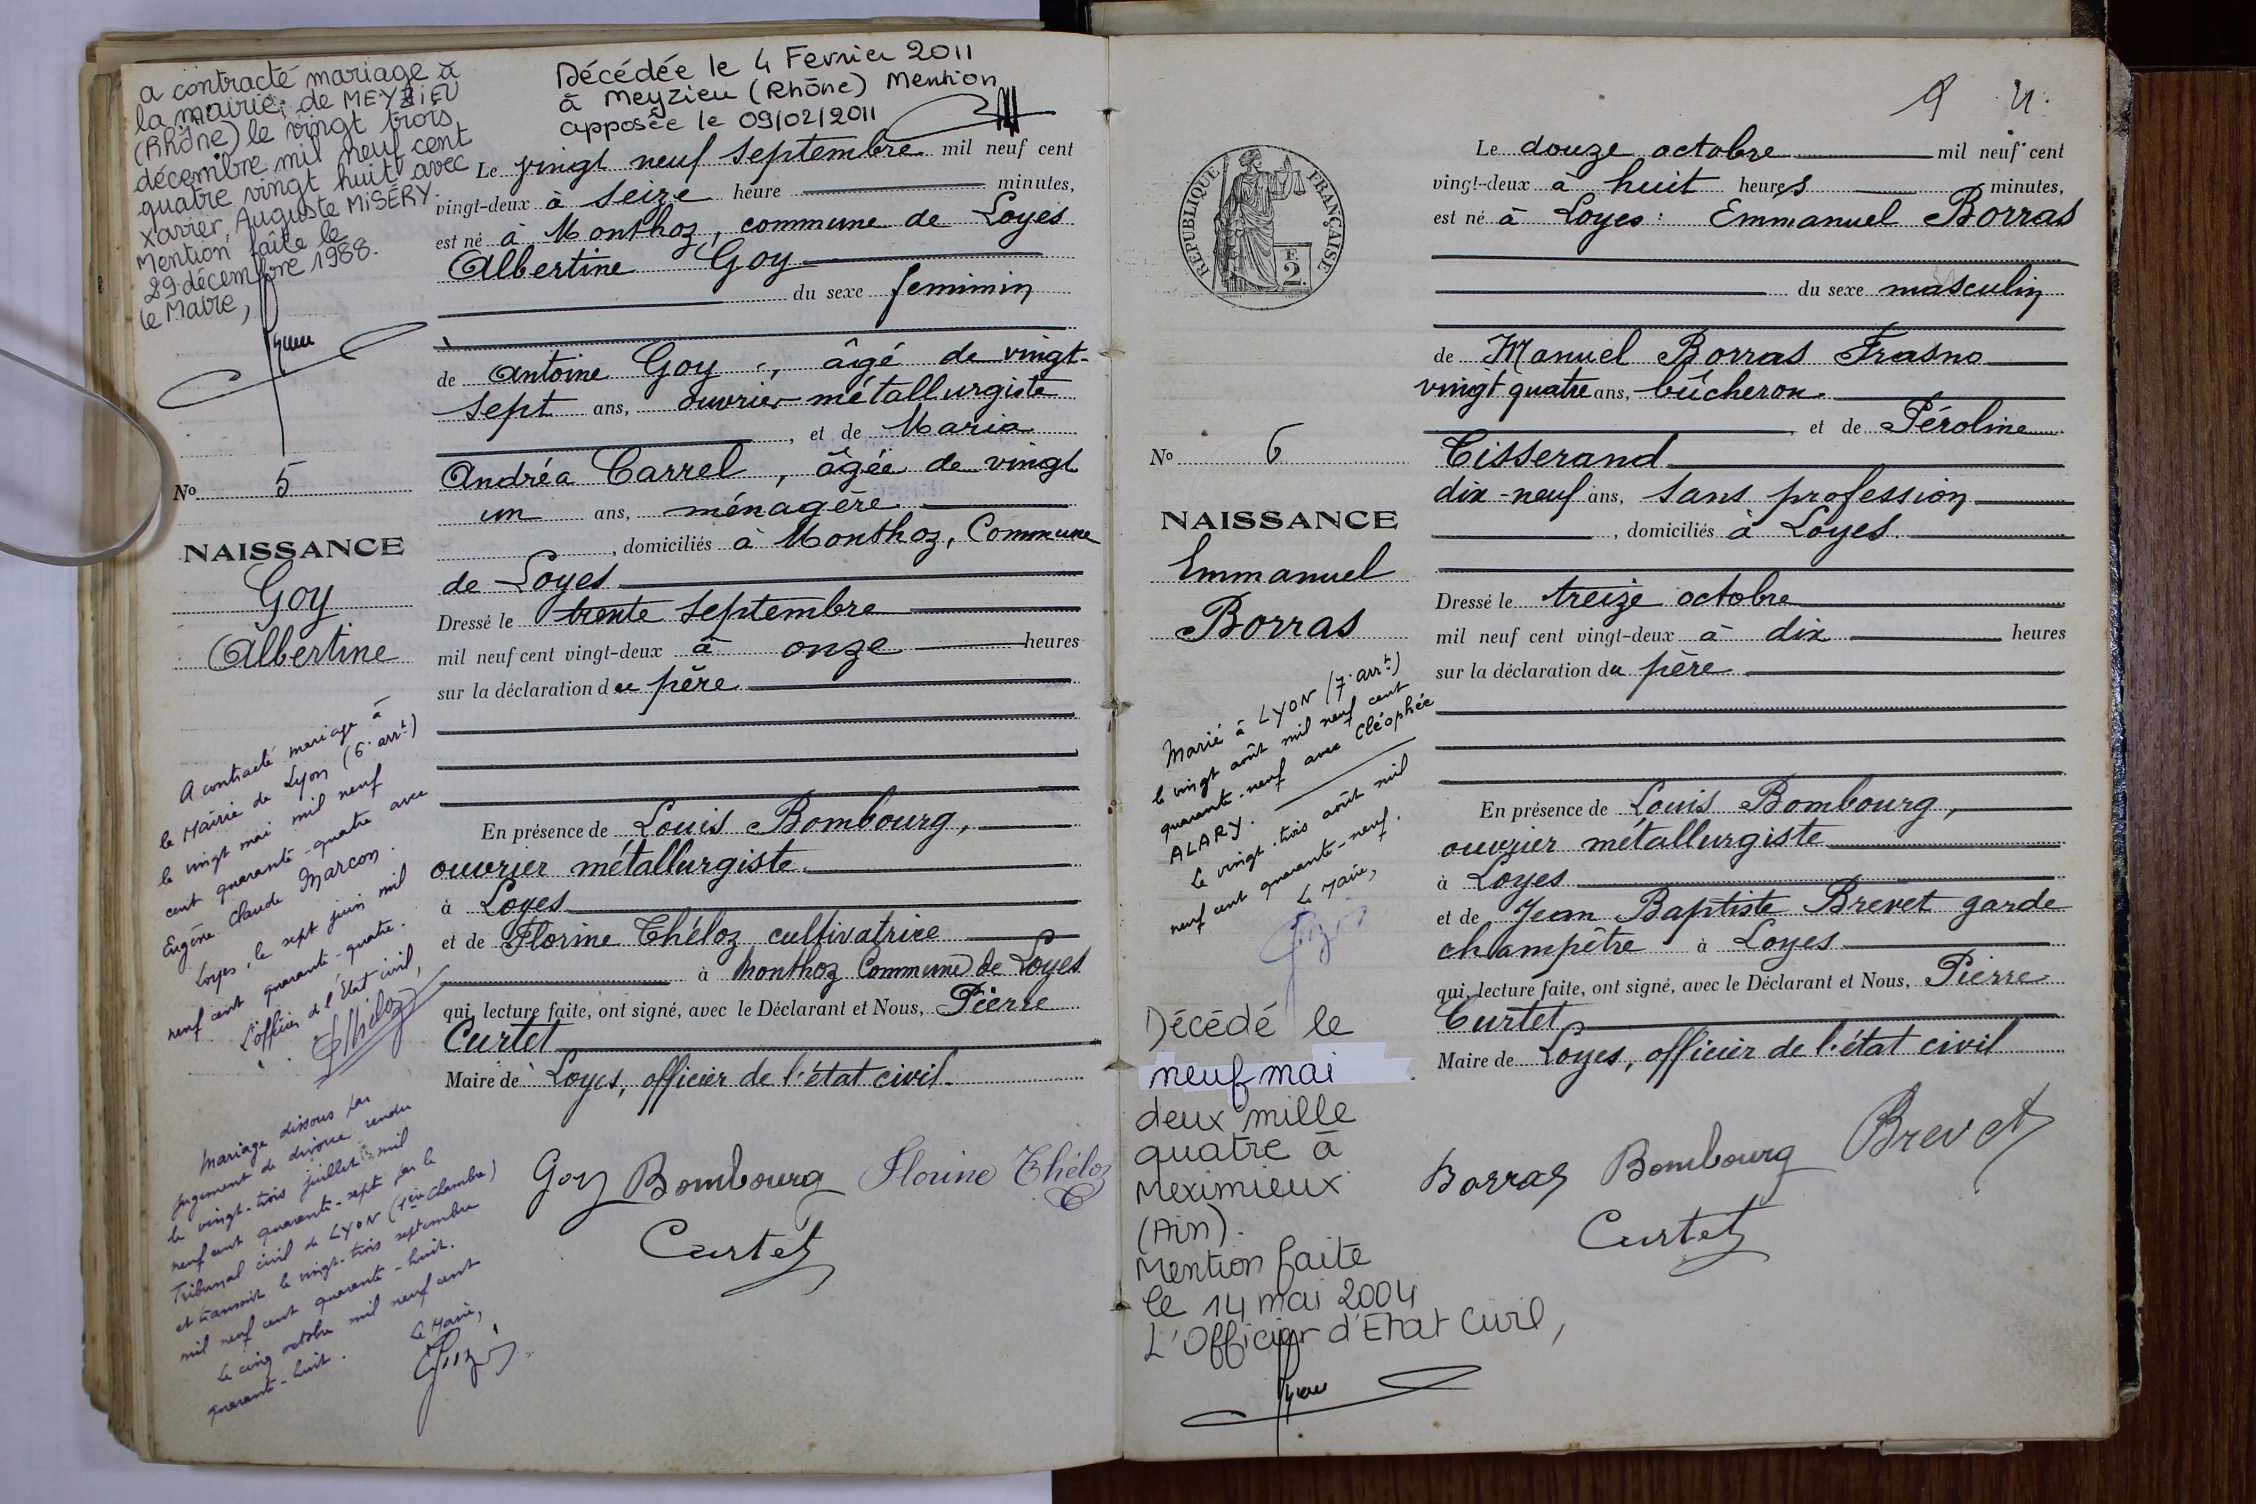 a contracté mariage à
la mairie de MEYZIEU
(Rhône) le vingt trois
décembre mil neuf cent
quatre vingt huit avec
Xavier, Auguste MISÉRY.
Mention faite le
29 décembre 1988.
le Maire,
Décédée le 4 Février 2011
à Meyzieu (Rhône) Mention
apposée le 09/02/2011
Le vingt neuf septembre mil neuf cent
vingt-deux à seize heure minutes,
est né à Monthoz, commune de Loyes
Albertine Goy
du sexe feminin
de Antoine Goy, âgé de vingt-
sept ans, ouvrier métallurgiste
, et de Maria
Andréa Carrel, âgée de vingt
un ans, ménagère
, domiciliés à Monthoz, Commune
de Loyes
Dressé le trente septembre
mil neuf cent vingt-deux à onze heures
sur la déclaration du père
En présence de Louis Bombourg,
ouvrier métallurgiste
à Loyes
et de Florine Théloz cultivatrice
à Monthoz Commune de Loyes
qui, lecture faite, ont signé, avec le Déclarant et Nous, Pierre
Curtet
Maire de Loyes, officier de l'état civil.
Goy Bombourg Florine Théloz
Curtet
No 5
NAISSANCE
Goy
Albertine
A contracté mariage à
la Mairie de Lyon (6e arrt)
le vingt mai mil neuf
cent quarante-quatre avec
Eugène Claude Marcon.
Loyes, le sept juin mil
neuf cent quarante-quatre.
L'officier de l'Etat civil,
Théloz
Mariage dissous par
jugement de divorce rendu
le vingt-trois juillet mil
neuf cent quarante-sept par le
Tribunal civil de LYON (1ère Chambre)
et transcrit le vingt-trois septembre
mil neuf cent quarante-huit.
Le cinq octobre mil neuf cent
quarante-huit.
Le Maire,
4.
RÉPUBLIQUE FRANÇAISE
F.
2
Le douze octobre mil neuf cent
vingt-deux à huit heures minutes,
est né à Loyes: Emmanuel Borras
du sexe masculin
de Manuel Borras Frasno
vingt quatre ans, bûcheron.
, et de Péroline
Tisserand
dix-neuf ans, sans profession
, domiciliés à Loyes.
Dressé le treize octobre
mil neuf cent vingt-deux à dix heures
sur la déclaration du père
En présence de Louis Bombourg,
ouvrier métallurgiste
à Loyes
et de Jean Baptiste Brevet garde
champêtre à Loyes
qui, lecture faite, ont signé, avec le Déclarant et Nous, Pierre
Curtet
Maire de Loyes, officier de l'état civil
Borras Bombourg Brevet
Curtet
No 6
NAISSANCE
Emmanuel
Borras
Marié à LYON (7e arrt)
le vingt août mil neuf cent
quarante-neuf avec Cléophée
ALARY.
Le vingt-trois août mil
neuf cent quarante-neuf.
Le Maire,
Décédé le
neuf mai
deux mille
quatre à
Meximieux
(Ain).
Mention faite
le 14 mai 2004
L'Officier d'Etat Civil,